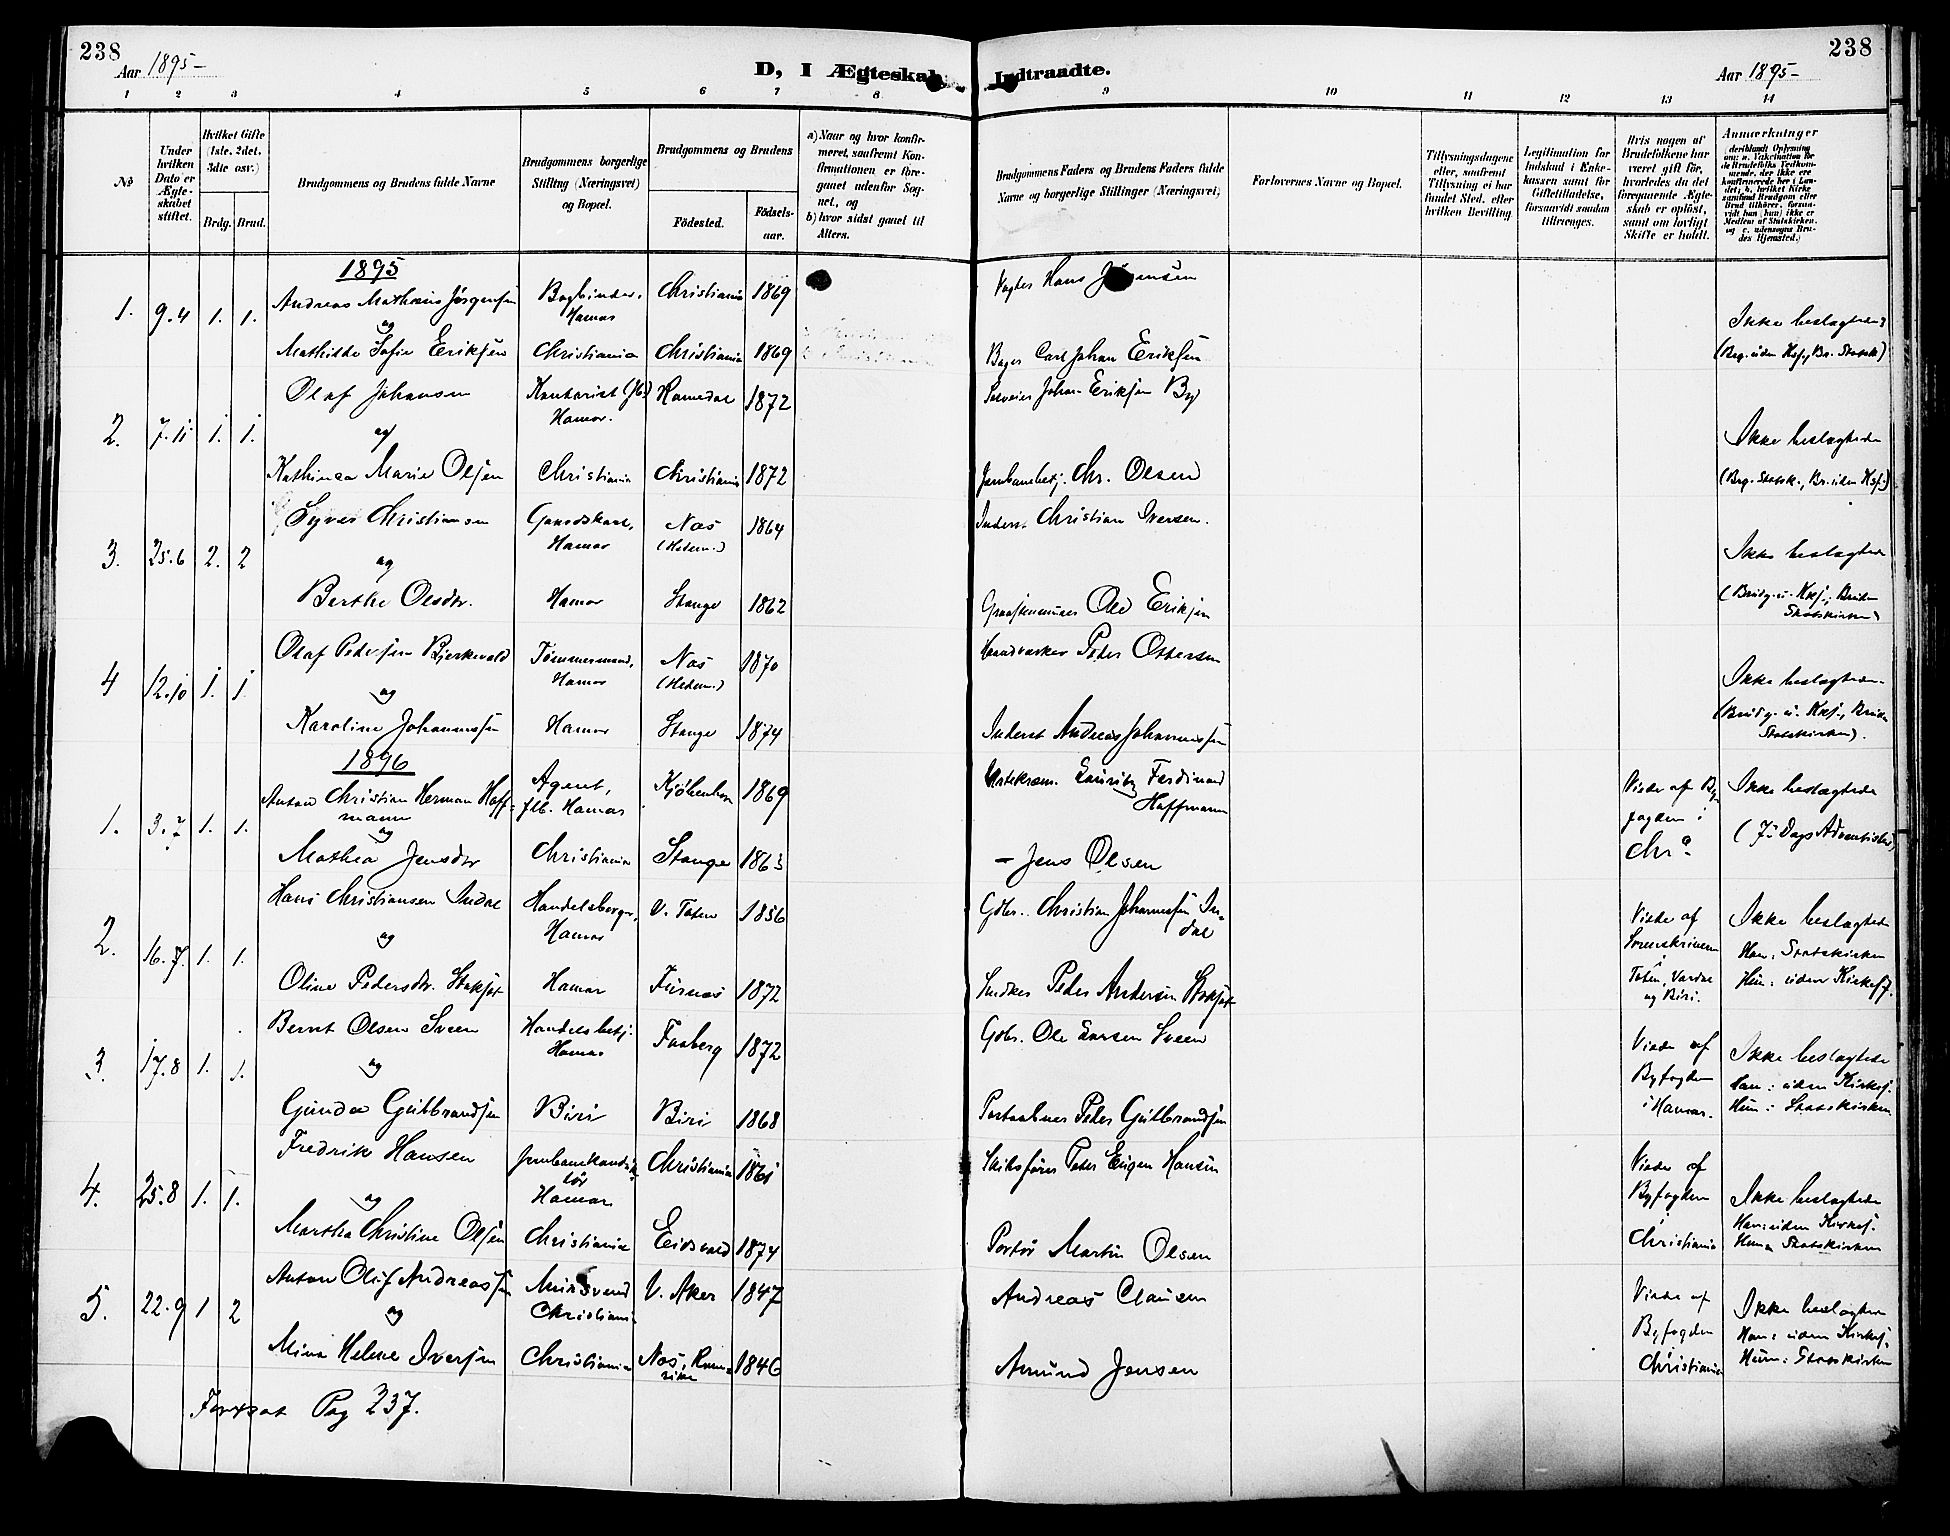 238
Aar 1895-
D, I Ægteskab Indtraadte.
Aar 1895-
238
1 2 3 4 5 6 7 8 9 10 11 12 13 14
No
Under hvilken Dato er Ægteskabet stiftet.
Hvilket Gifte (1ste, 2det, 3die osv.)
Brdg. Brud.
Brudgommens og Brudens fulde Navne
Brudgommens borgerlige Stilling (Næringsvei) og Bopæl.
Brudgommens og Brudens
Födested.
Födselsaar.
a) Naar og hvor konfirmeret, saafremt Konfirmationen er foregaaet udenfor Sognet, og
b) hvor sidst gaaet til Alters.
Brudgommens Faders og Brudens Faders fulde Navne og borgerlige Stillinger (Næringsvei)
Forlovernes Navne og Bopæl.
Tillysningsdagene eller, saafremt Tillysning ei har fundet Sted, efter hvilken Bevilling.
Legitimation for Indskud i Enkekassen samt for Giftetilladelse, forsaavidt saadan tiltrænges.
Hvis nogen af Brudefolkene har været gift før, hvorledes da det foregaaende Ægteskab er opløst, samt om lovligt Skifte er holdt.
Anmærkninger
1895
1. 9.4 1. 1. Andreas Mathæus Jørgensen Bogbinder, Hamar Christiania 1869 Vogter Hans Jørgensen
og
Ikke beslægtede
Mathilde Sofie Eriksen Christiania Christiania 1869 Bager Carl Johan Eriksen (Brg. uden Ksf., Br. Statsk)
Olaf Johansen Kontorist Hamar. Romedal 1872 Selveier Johan Eriksen By
2. 7.11 1. 1. og Ikke beslægtede
Kathinca Marie Olsen Christiania Christiania 1872 Jernbanebetj. Chr. Olsen (Brg. Statsk., Br. uden Ksf.)
Syver Christiansen Hamar Næs (Hedem.) 1864 Inderst Christian Iversen.
3. 25.6 2. 2 og Ikke beslægtede
Berthe Olsdtr. Hamar Stange 1862 Ole Eriksen (Brudg. u. Ksf., Bruden Statskirken)
Olaf Pedersen Bjerkevold Tømmermand, Hamar Næs (Hedem.) 1870 Peder Ottersen
4 12.10 1. 1. og Ikke beslægtede.
Karoline Johannessen Hamar Stange 1874 Inderst Andreas Johannessen (Brudg. u. Ksf., Bruden Statskirken).
1896
Anton Christian Herman Hoffmann Agent, Hamar Kjøbenhavn 1869 Lauritz Ferdinand Hoffmann
1. 3.7 1. 1. og Viede af Byfogden i Chr.a Ikke beslægtede (7. Dags Adventister)
Mathea Jensdtr Christiania Stange 1863 - Jens Olsen
Hans Christiansen Indal Handelsborger, Hamar V. Toten 1856 Gbr. Christian Johannessen Indal
2. 16.7. 1. 1. og Viede af Sorenskriveren i Toten, Vardal og Biri. Ikke beslægtede Han: Statskirken Hun: uden Kirkesf.
Oline Pedersdtr. Hamar Furnæs 1872 Snedker Peder Andersen
Bernt Olsen Sveen Handelsbetj. Hamar Faaberg 1872 Gbr. Ole Larsen Sveen
3. 17.8 1. 1. og Viede af Byfogden i Hamar. Ikke beslægtede Han: uden Kirkesf. Hun: Statskirken
Gunda Gulbrandsen Biri Biri 1868 Peder Gulbrandsen
Fredrik Hansen Jernbanekonduktør Hamar Christiania 1861 Skibsfører Peter Eugen Hansen
4. 25.8 1. 1. og Viede af Byfogden i Christiania Ikke beslægtede Han: uden Kirkesf. Hun: Statskirken
Martha Christine Olsen Christiania Eidsvold 1874 Portør Martin Olsen
Anton Oluf Andreassen Mursvend Christiania V. Aker 1847 Andreas Clausen
5. 22.9 1 2 og Viede af Byfogden i Christiania Ikke beslægtede Han: uden Kirkesf. Hun: Statskirken
Mina Helene Iversen Christiania Næs, Romerike 1846 Amund Jensen
Fortsat Pag 237.